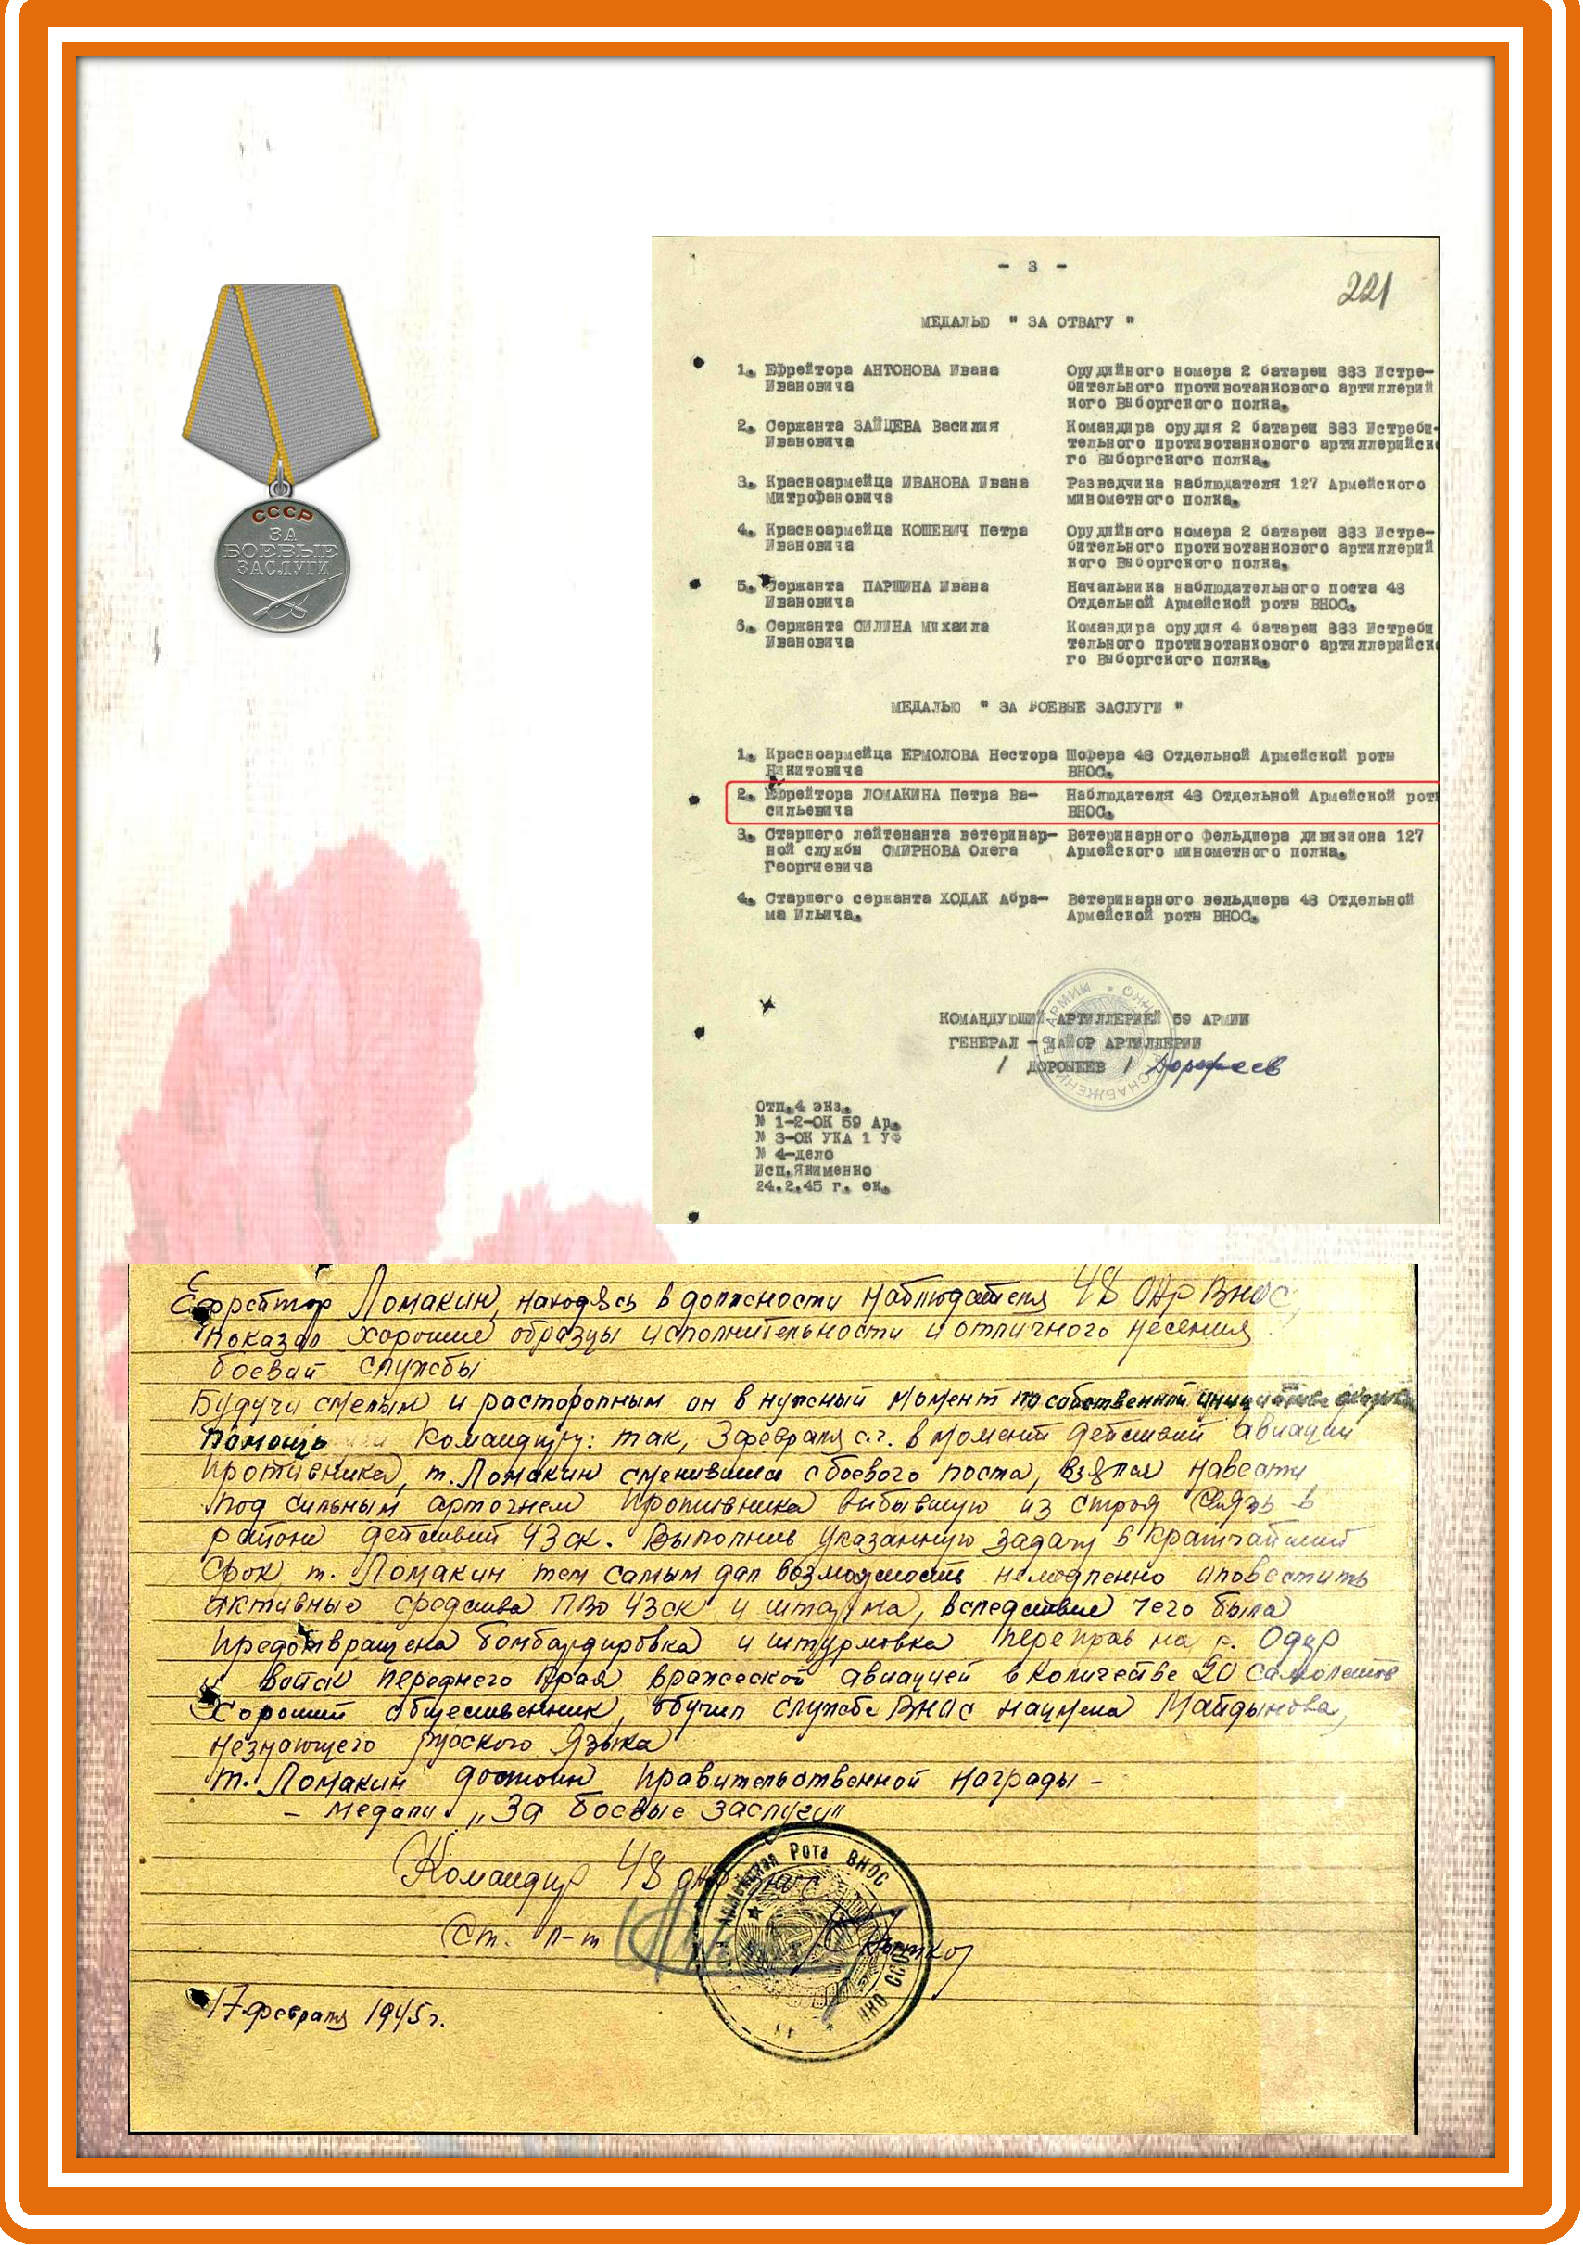 СССР
ЗА
БОЕВЫЕ
ЗАСЛУГИ
- 3 -
221
МЕДАЛЬЮ " ЗА ОТВАГУ "
1. Ефрейтора АНТОНОВА Ивана Орудийного номера 2 батареи 883 Истре-
Ивановича бительного противотанкового артиллерий
кого Выборгского полка.
2. Сержанта ЗАЙЦЕВА Василия Командира орудия 2 батареи 883 Истреби-
Ивановича тельного противотанкового артиллерийск
го Выборгского полка.
3. Красноармейца ИВАНОВА Ивана Разведчика наблюдателя 127 Армейского
Митрофановича минометного полка.
4. Красноармейца КОШЕВИЧ Петра Орудийного номера 2 батареи 883 Истре-
Ивановича бительного противотанкового артиллерий
кого Выборгского полка.
5. Сержанта ПАРШИНА Ивана Начальника наблюдательного поста 48
Ивановича Отдельной Армейской роты ВНОС.
6. Сержанта СИЛИНА Михаила Командира орудия 4 батареи 883 Истреби
Ивановича тельного противотанкового артиллерийск
го Выборгского полка.
МЕДАЛЬЮ " ЗА БОЕВЫЕ ЗАСЛУГИ "
1. Красноармейца ЕРМОЛОВА Нестора Шофера 48 Отдельной Армейской роты
Никитовича ВНОС.
2. Ефрейтора ЛОМАКИНА Петра Ва- Наблюдателя 48 Отдельной Армейской роты
сильевича ВНОС.
3. Старшего лейтенанта ветеринар- Ветеринарного фельдшера дивизиона 127
ной службы СМИРНОВА Олега Армейского минометного полка.
Георгиевича
4. Старшего сержанта ХОДАК Абра- Ветеринарного вельдшера 48 Отдельной
ма Ильича. Армейской роты ВНОС.
КОМАНДУЮЩИЙ АРТИЛЛЕРИЕЙ 59 АРМИИ
ГЕНЕРАЛ - МАЙОР АРТИЛЛЕРИИ
/ ДОРОФЕЕВ / Дорофеев
Отп.4 экз.
№ 1-2-ОК 59 Ар.
№ 3-ОК УКА 1 УФ
№ 4-дело
Исп.Якименко
24.2.45 г. ек.
Ефрейтор Ломакин, находясь в должности наблюдателя 48 ОАр ВНОС,
показал хорошие образцы исполнительности и отличного несения
боевой службы
Будучи смелым и расторопным он в нужный момент по собственной инициативе
помощь Командиру: так, 3 февраля с.г. в момент действий авиации
противника, т. Ломакин сменившись с боевого поста, взялся навести
под сильным артогнем противника выбывшую из строя связь в
районе действий 43 ск. Выполнив указанную задачу в кратчайший
срок, т. Ломакин тем самым дал возможность немедленно оповестить
активные средства ПВО 43 ск и штарма, вследствие чего была
предотвращена бомбардировка и штурмовка переправ на р. Одер
и войск переднего края вражеской авиацией в количестве 20 самолетов
Хороший общественник, обучил службе ВНОС нацмена Майдынова,
незнающего русского языка
т. Ломакин достоин правительственной награды -
- медали "За боевые заслуги"
Командир 48 ОАР ВНОС
Ст. л-т
Армейская Рота ВНОС
НКО СССР
17 февраля 1945 г.